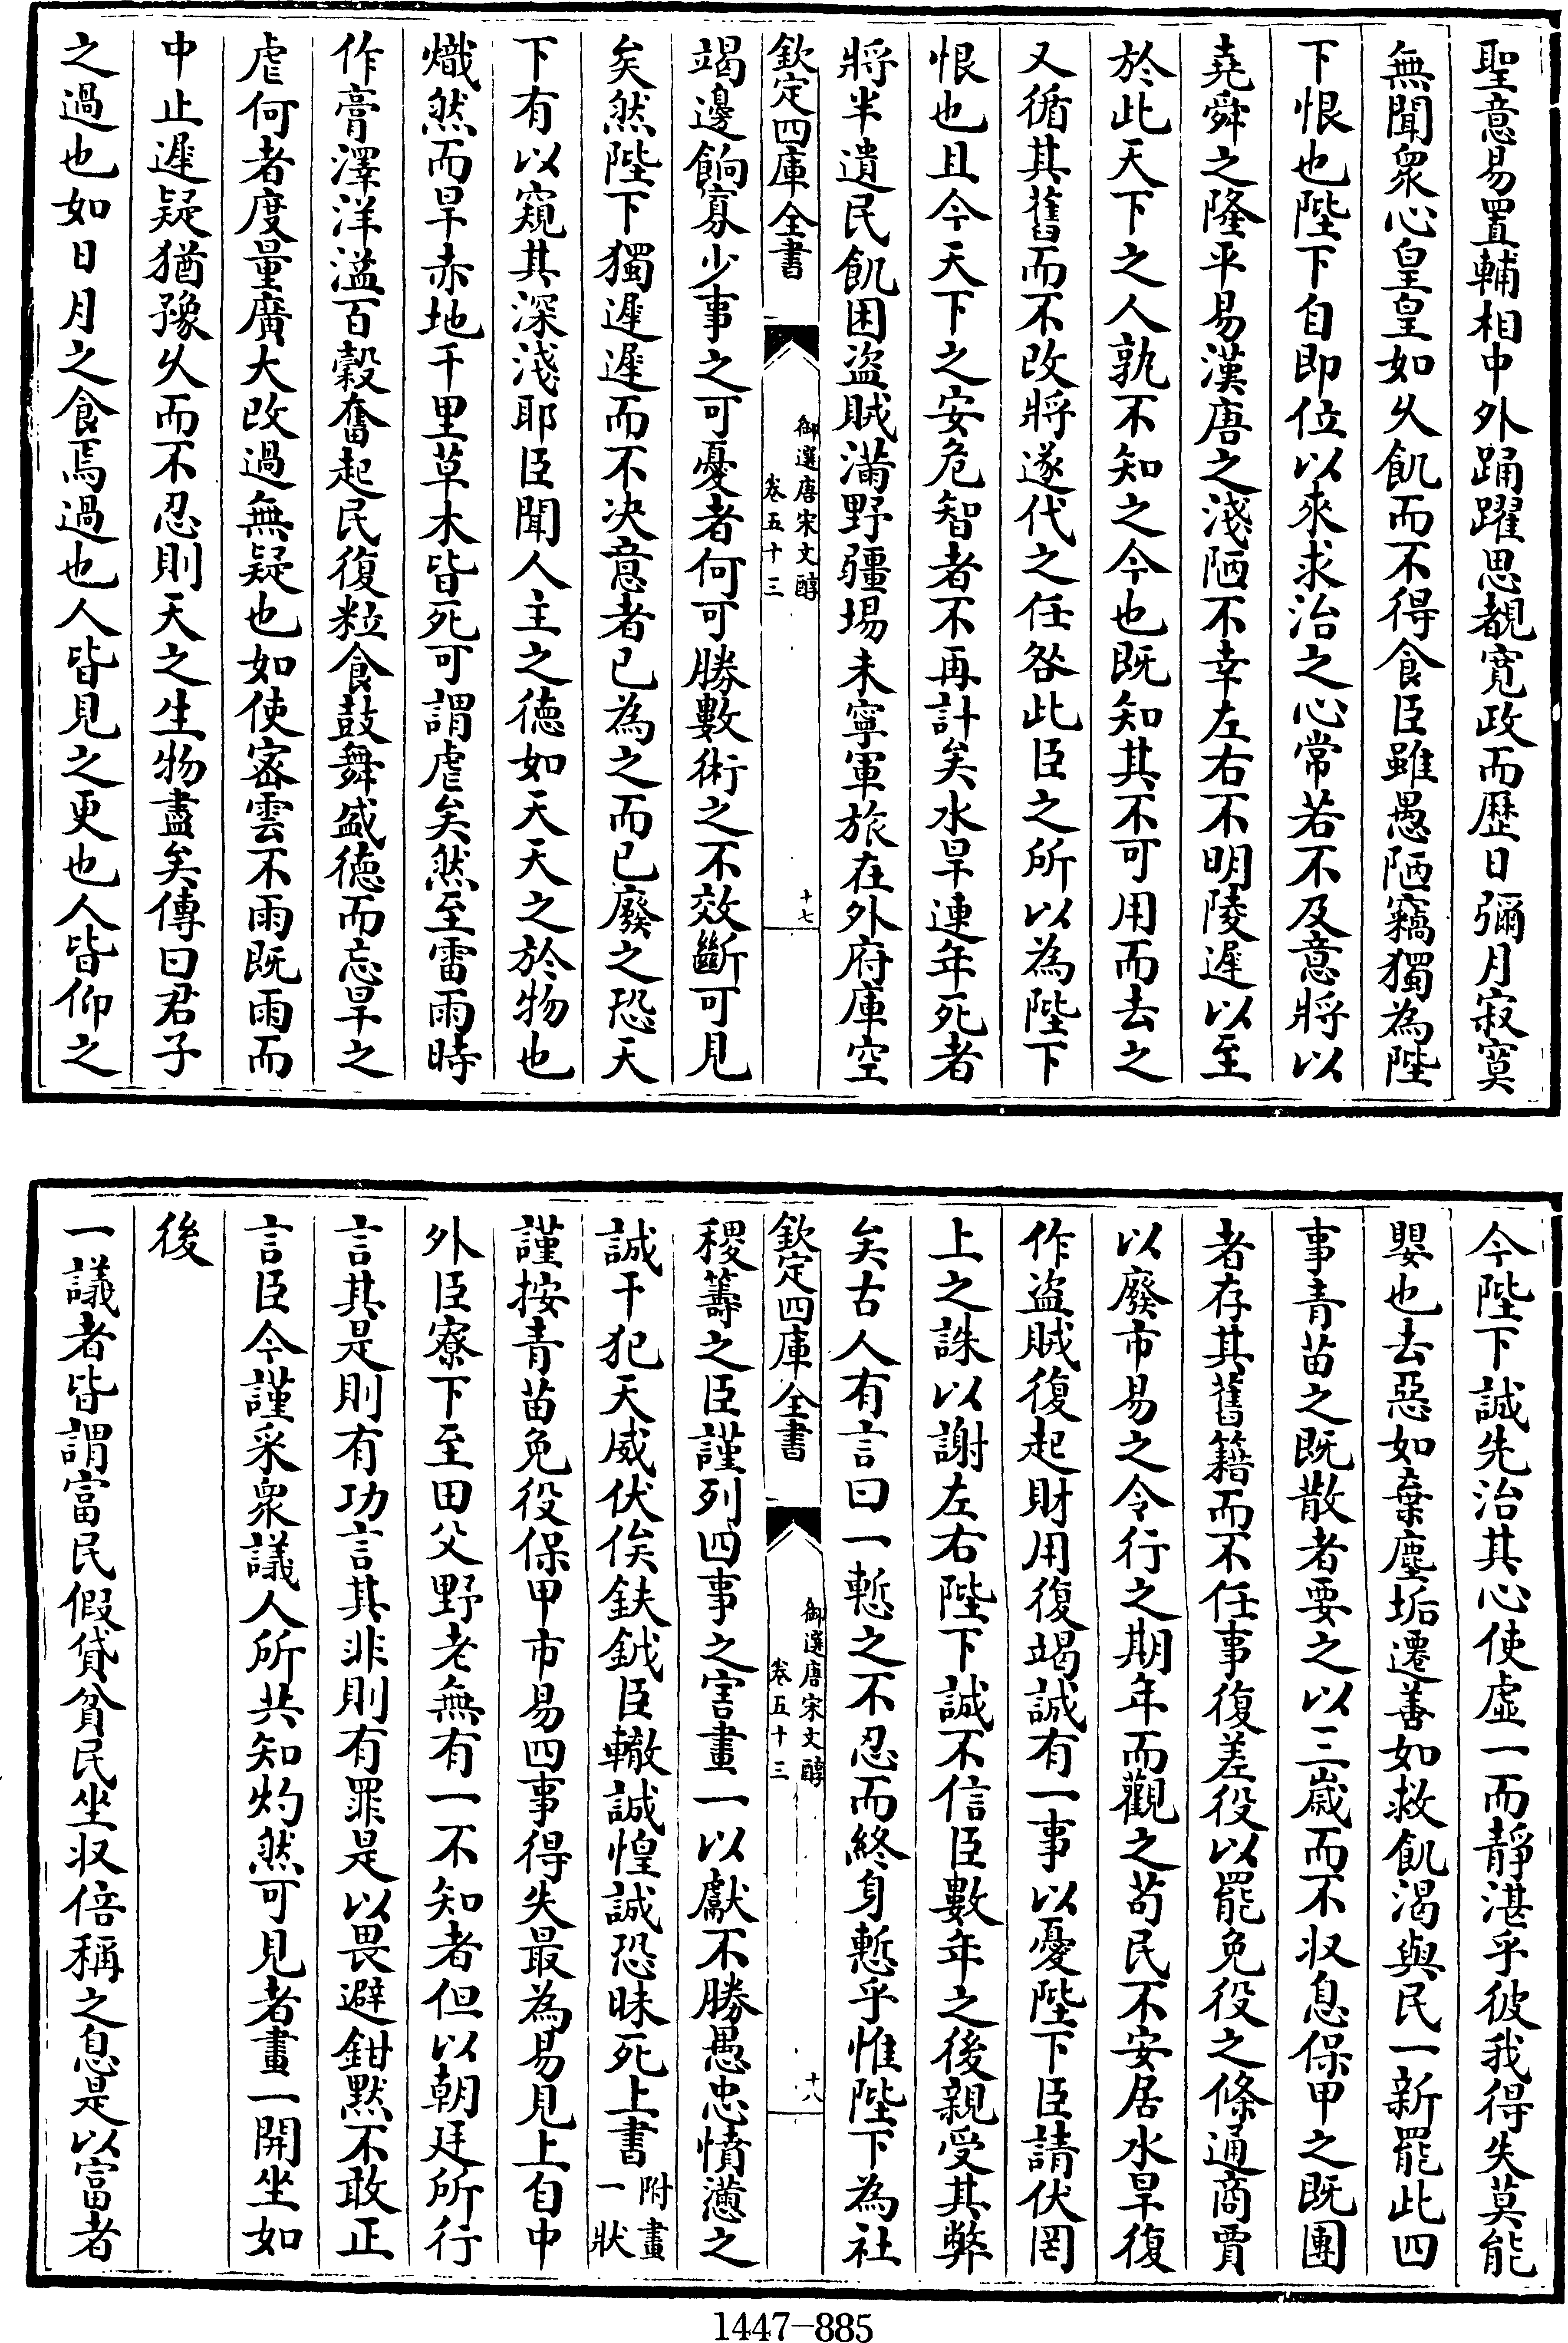 聖意易置輔相中外踊躍思覩寛政而歷日彌月寂寞
無聞衆心皇皇如久飢而不得食臣雖愚陋竊獨為陛
下恨也陛下自即位以來求治之心常若不及意將以
堯舜之隆平易漢唐之淺陋不幸左右不明陵遲以至
於此天下之人孰不知之今也既知其不可用而去之
又循其舊而不改將遂代之任咎此臣之所以為陛下
恨也且今天下之安危智者不再計矣水旱連年死者
將半遺民飢困盜賊滿野疆埸未寧軍旅在外府庫空
欽定四庫全書
御選唐宋文醇
卷五十三
十七
竭邊餉寡少事之可憂者何可勝數術之不效斷可見
矣然陛下獨遲遲而不决意者已為之而已廢之恐天
下有以窺其深淺耶臣聞人主之德如天天之於物也
熾然而旱赤地千里草木皆死可謂虐矣然至雷雨時
作膏澤洋溢百穀奮起民復粒食鼓舞盛德而忘旱之
虐何者度量廣大改過無疑也如使密雲不雨既雨而
中止遲疑猶豫久而不忍則天之生物盡矣傳曰君子
之過也如日月之食焉過也人皆見之更也人皆仰之
今陛下誠先治其心使虛一而靜湛乎彼我得失莫能
嬰也去惡如棄塵垢遷善如救飢渴與民一新罷此四
事青苗之既散者要之以三歲而不收息保甲之既團
者存其舊籍而不任事復差役以罷免役之條通商賈
以廢市易之令行之期年而觀之苟民不安居水旱復
作盜賊復起財用復竭誠有一事以憂陛下臣請伏罔
上之誅以謝左右陛下誠不信臣數年之後親受其弊
矣古人有言曰一慙之不忍而終身慙乎惟陛下為社
欽定四庫全書
御選唐宋文醇
卷五十三
十八
稷籌之臣謹列四事之害畫一以獻不勝愚忠憤懣之
誠干犯天威伏俟鈇鉞臣轍誠惶誠恐昧死上書附畫一狀
謹按青苗免役保甲市易四事得失最為易見上自中
外臣寮下至田父野老無有一不知者但以朝廷所行
言其是則有功言其非則有罪是以畏避鉗黙不敢正
言臣今謹采衆議人所共知灼然可見者畫一開坐如
後
一議者皆謂富民假貸貧民坐收倍稱之息是以富者
1447-885